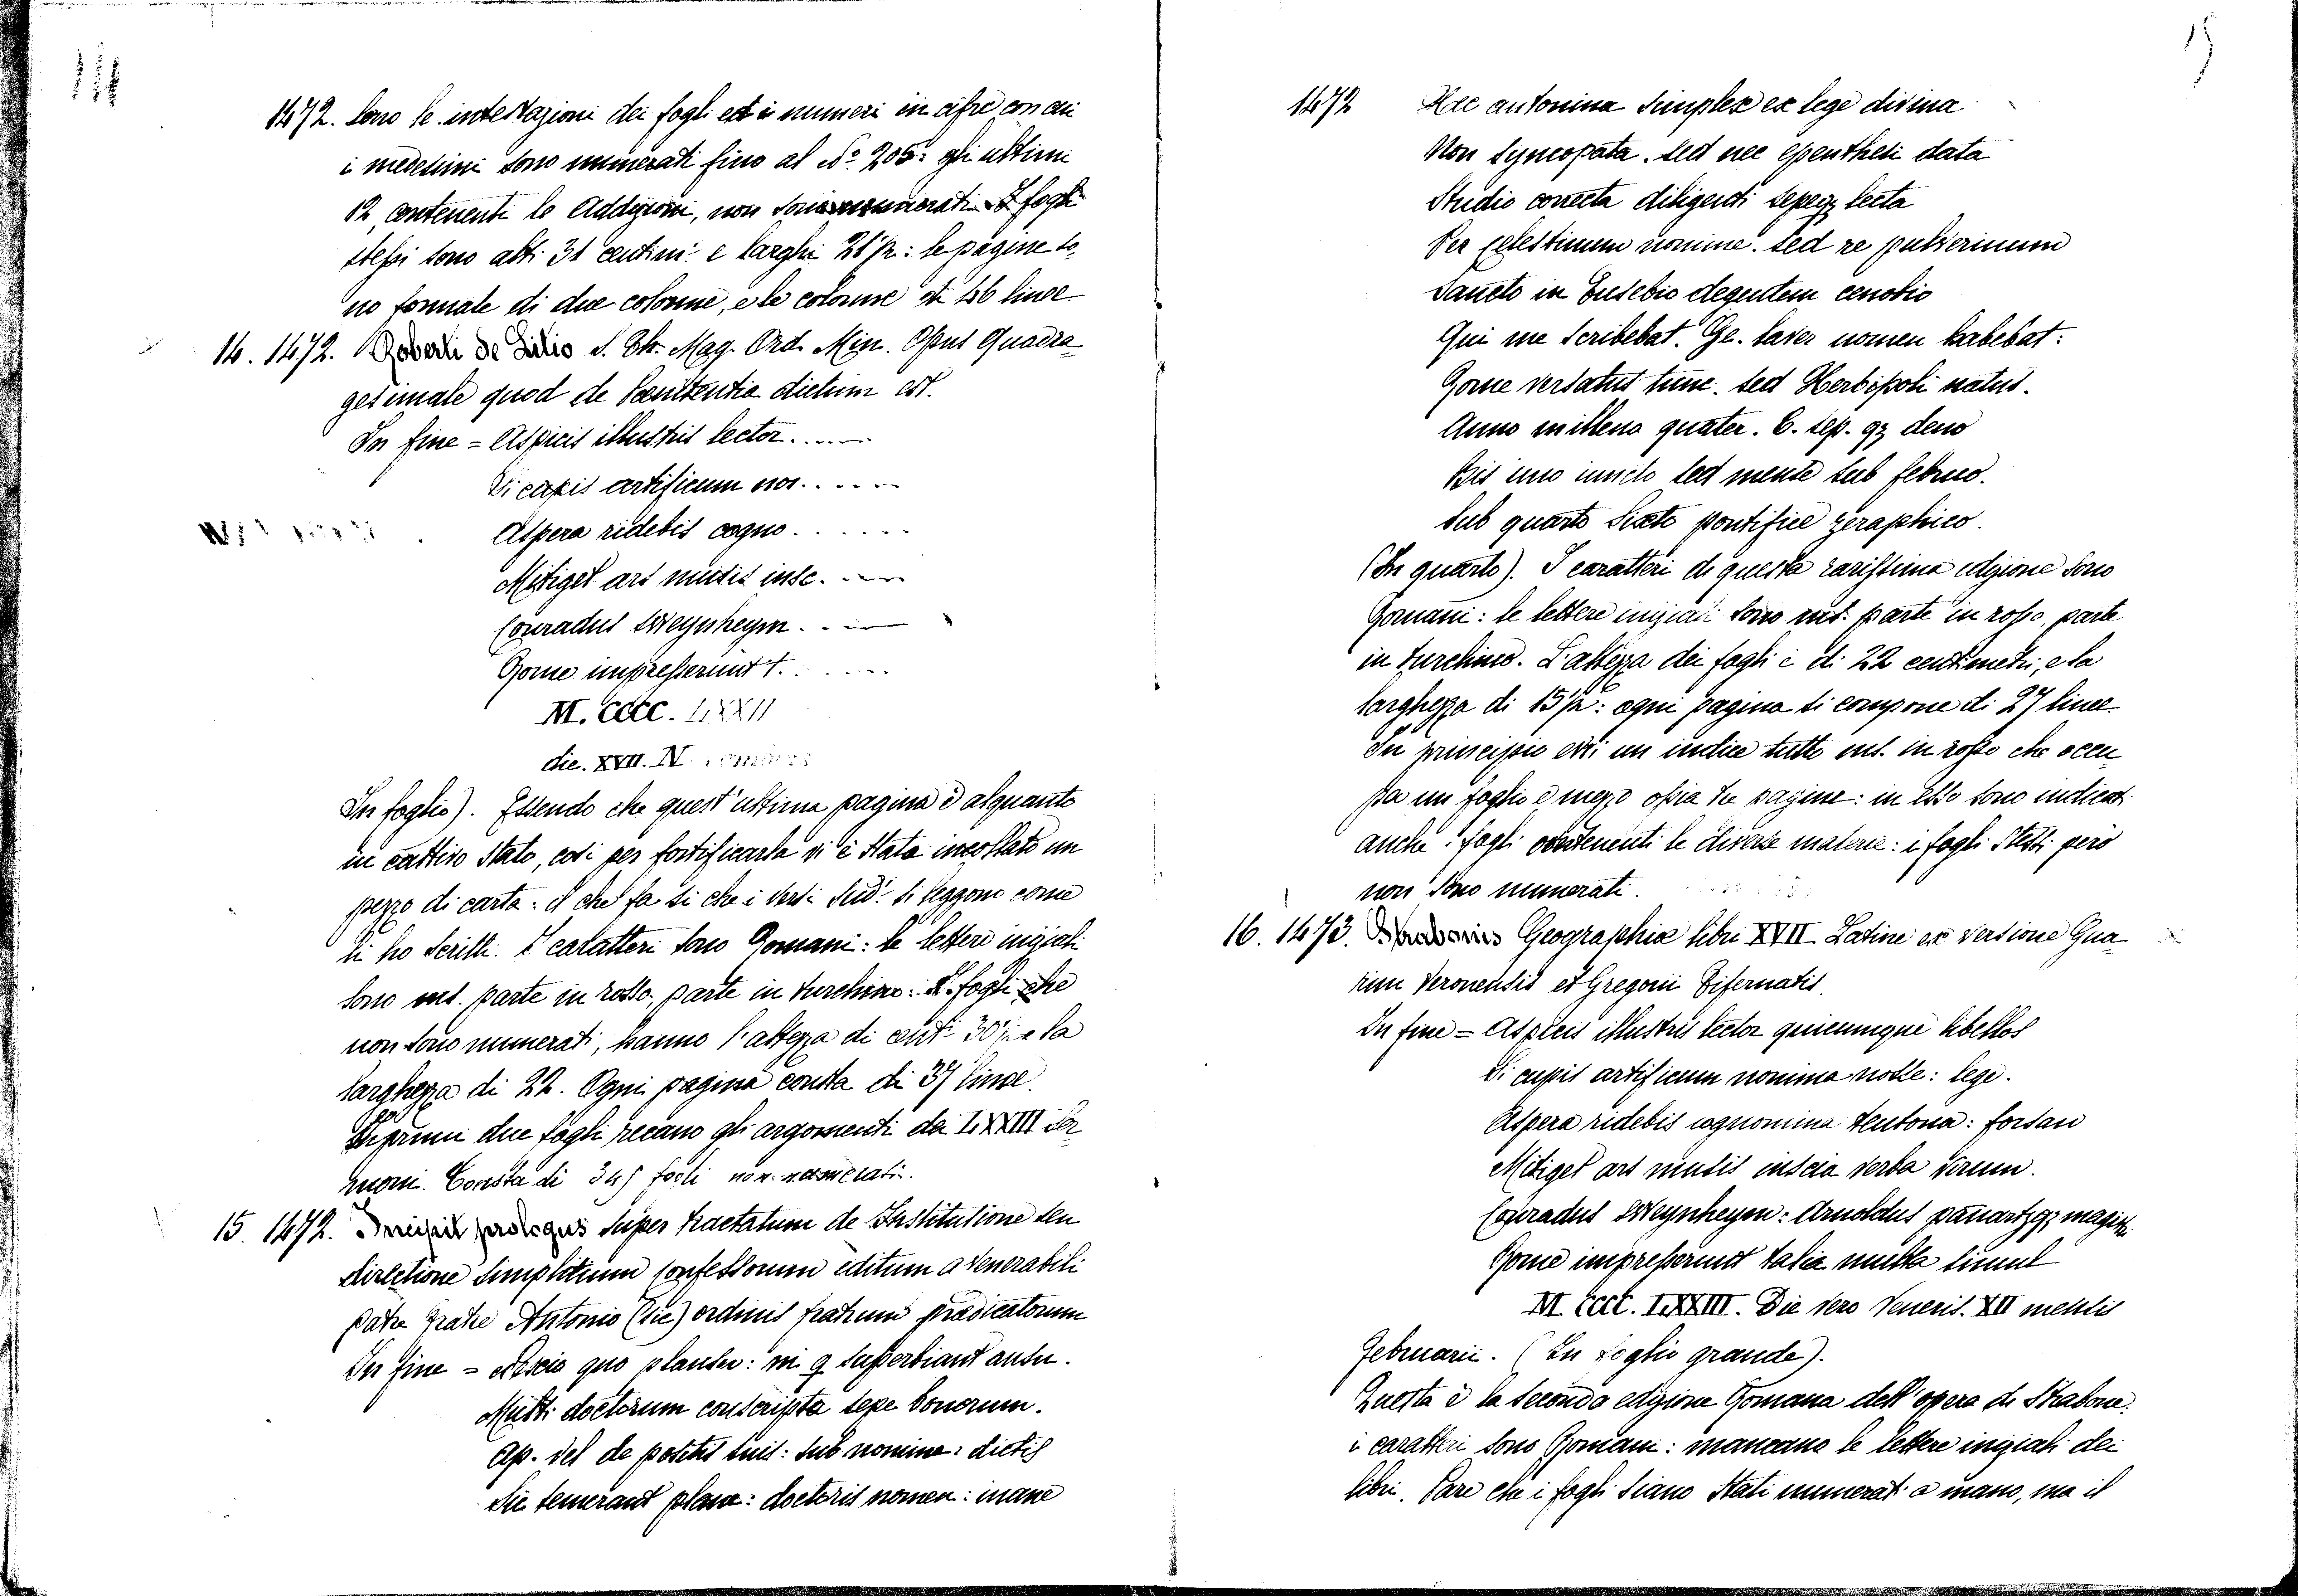 14
1472. Sono le intestazioni dei fogli ed i numeri in cifre con cui
i medesimi sono numerati fino al No. 205: gli ultimi
12, contenenti le Addizioni, non sono numerati. I fogli
stessi sono alti 31 centim. e larghi 21 1/2: le pagine so
no formate di due colonne, e le colonne di 46 linee.
14. 1472. Roberti de Litio S. Th. Mag. Ord. Min. Opus Quadra
gesimale quod de Pœnitentia dictum est.
In fine = Aspicis illustris lector.....
Si cupis artificum nos.....
Aspera ridebis cogno......
Mitiget ars musis insc.....
Conradus Sweynheym...
Rome impresserunt t......
M. CCCC. LXXII
die. XVII. Novembris
In foglio). Essendo che quest'ultima pagina è alquanto
in cattivo stato, così per fortificarla vi è stato incollato un
pezzo di carta: il che fa sì che i versi sud. si leggono come
li ho scritti. I caratteri sono Romani: le lettere iniziali
sono ms. parte in rosso, parte in turchino: I fogli che
non sono numerati, hanno l'altezza di cent. 30 1/2 e la
larghezza di 22. Ogni pagina consta di 37 linee.
I primi due fogli recano gli argomenti dei LXXIII Ser
moni. Consta di 345 fogli non numerati.
15. 1472. Incipit prologus super tractatum de Institutione seu
directione simplicium confessorum editum a venerabili
patre fratre Antonio (sic) ordinis fratrum prædicatorum
In fine = Nescio quo plausu: ni q superbiant ausu.
Multi doctorum conscripta sepe bonorum.
Ap. vel de positis suis: sub nomine: dictis
Sic temerant plane: doctoris nomen: inane
15
1472 Hec antonina simplex ex lege divina
Non syncopata. sed nec epenthesi data
Studio correcta diligenti sepeqz lecta
Per celestinum nomine. sed re pulverinum
Sancto in Eusebio degentem cenobio
Qui me scribebat. Ge. laver nomen habebat:
Rome versatus tunc. sed Herbipoli natus.
Anno milleno quater. C. sep. qz deno
Bis uno iuncto sed mense sub februo.
Sub quarto Sixto pontifice zeraphico.
(In quarto). I caratteri di questa rarissima edizione sono
Romani: le lettere iniziali sono ms. parte in rosso, parte
in turchino. L'altezza dei fogli è di 22 centimetri, e la
larghezza di 15 1/2: ogni pagina si compone di 27 linee.
In principio evvi un indice tutto ms. in rosso che occu
pa un foglio e mezzo ossia tre pagine: in esso sono indicati
anche i fogli contenenti le diverse materie: i fogli stessi però
non sono numerati.
16. 1473. Strabonis Geographiæ libri XVII Latine ex versione Gua
rini Veronensis et Gregorii Tifernatis.
In fine = Aspicis illustris lector quicumque libellos
Si cupis artificum nomina nosse: lege.
Aspera ridebis cognomina teutona: forsan
Mitiget ars musis inscia verba virum.
Conradus Sweynheym: Arnoldus panartzqz magistri
Rome impresserunt talia multa simul
M. CCCC. LXXIII. Die vero Veneris. XII mensis
Februarii. (In foglio grande).
Questa è la seconda edizione Romana dell'opera di Strabone:
i caratteri sono Romani: mancano le lettere iniziali dei
libri. Pare che i fogli siano stati numerati a mano, ma il